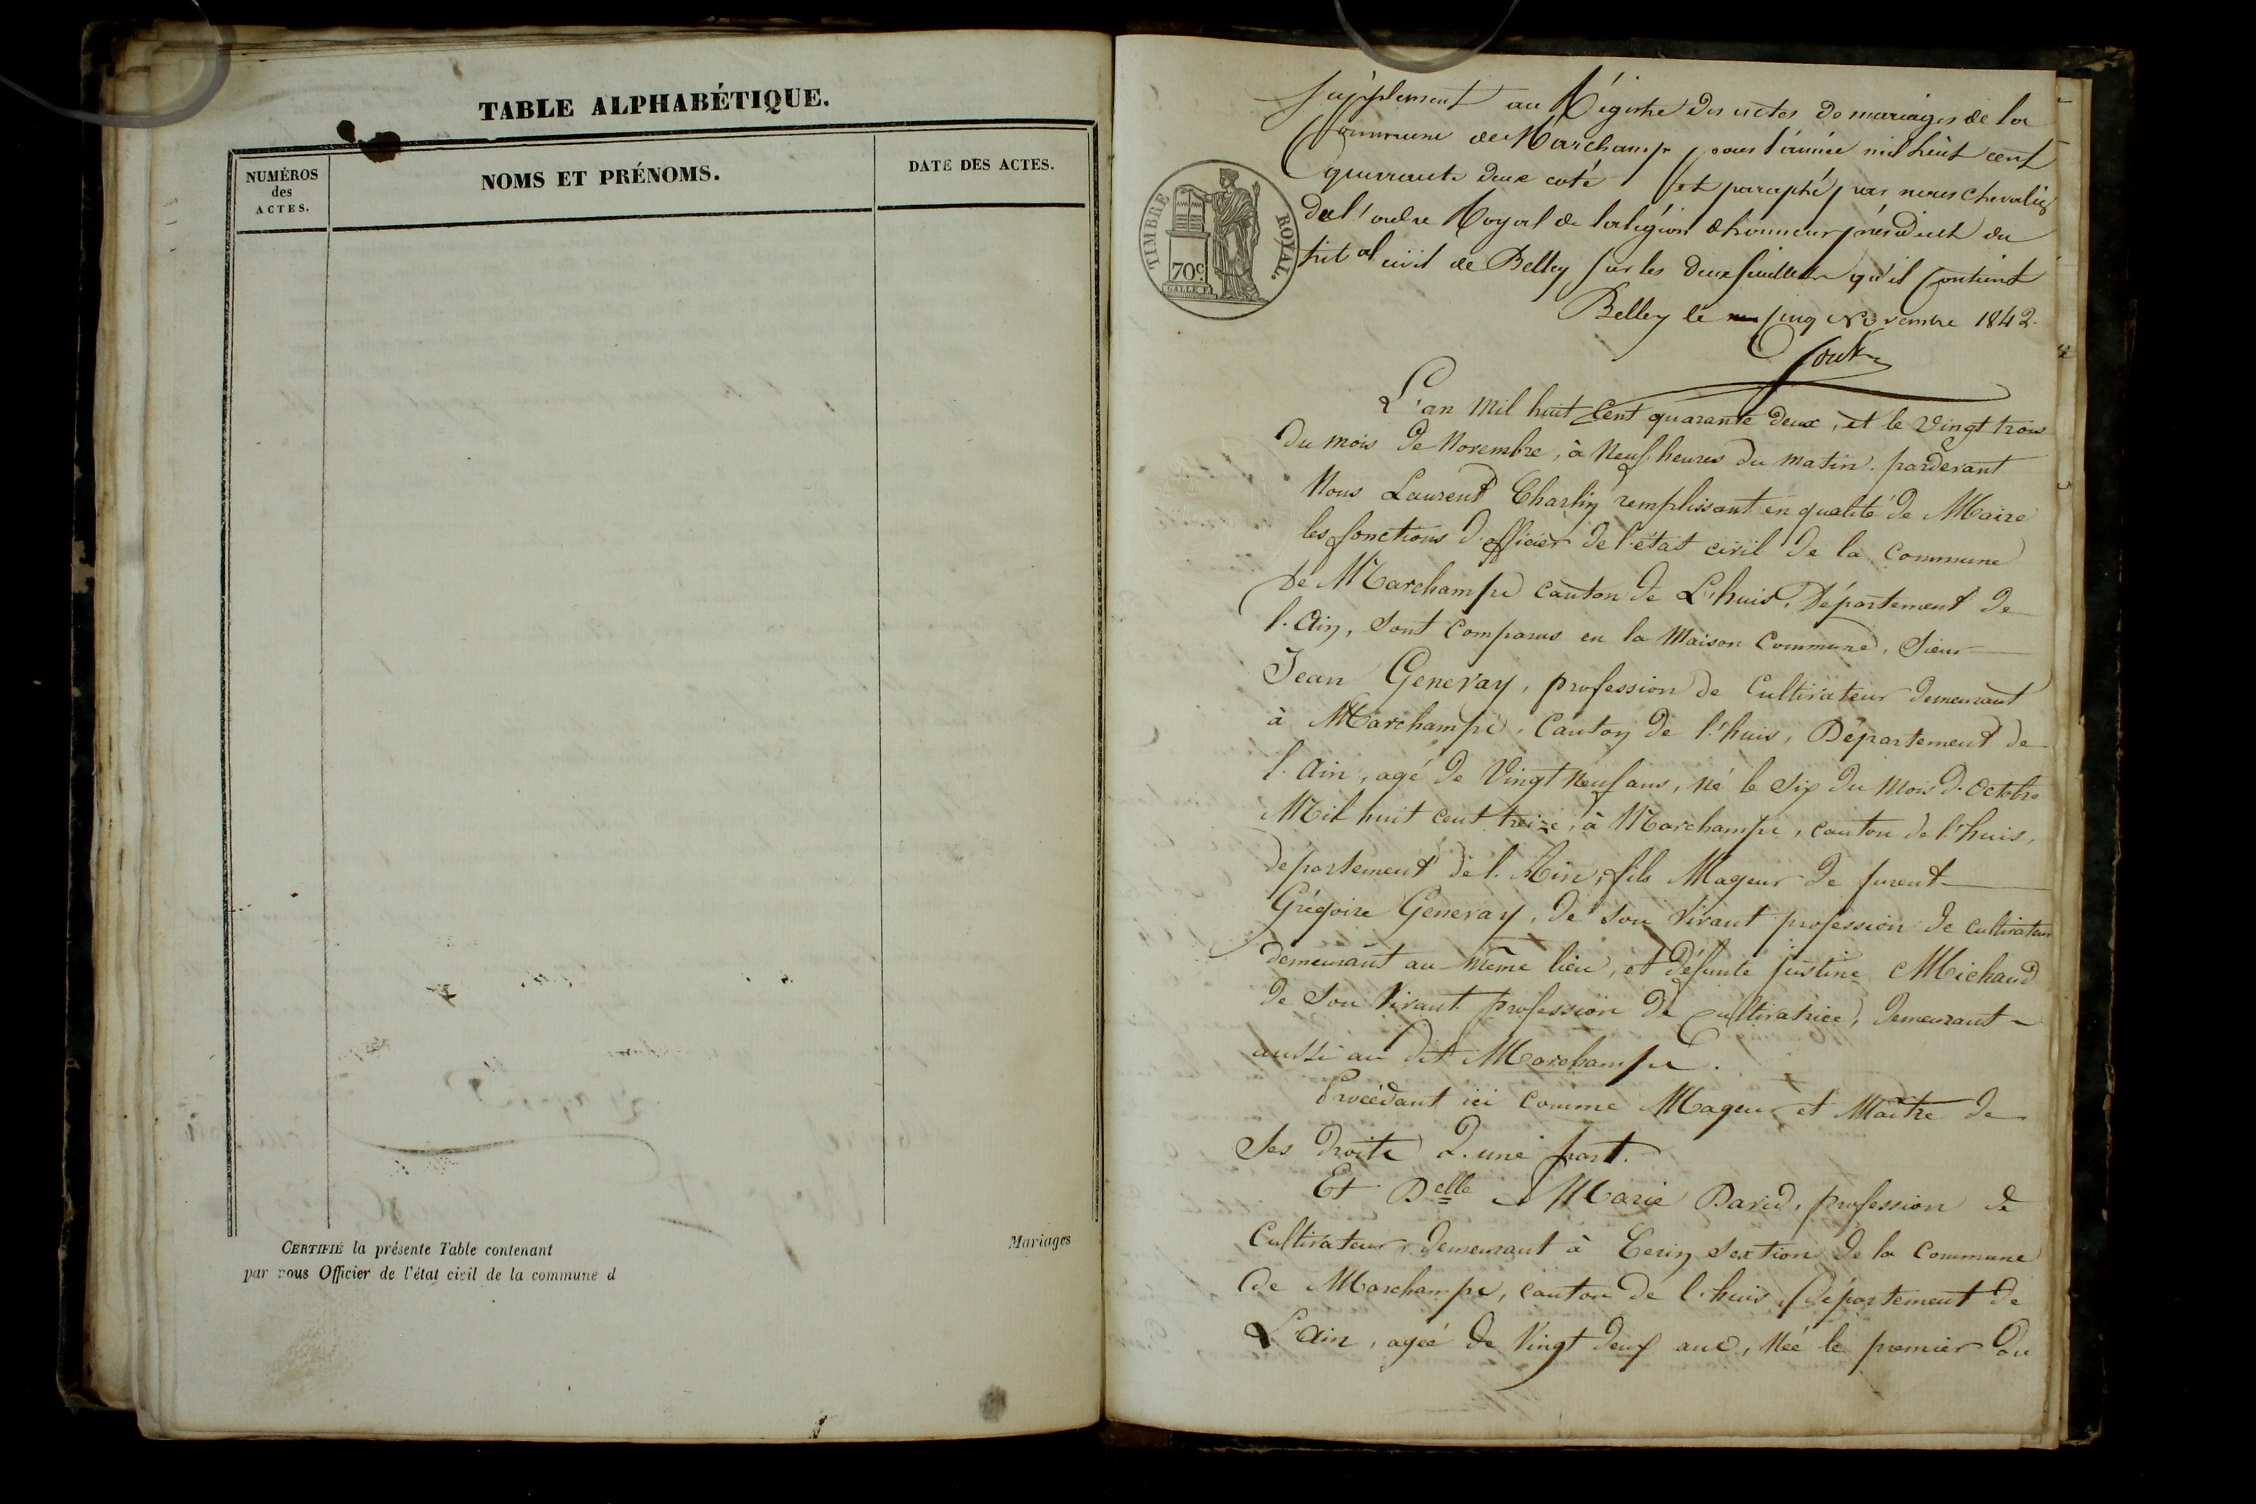 TABLE ALPHABÉTIQUE.
NUMÉROS
des
ACTES.
NOMS ET PRÉNOMS.
DATE DES ACTES.
CERTIFIÉ la présente Table contenant
par nous Officier de l'état civil de la commune d
Mariages
Supplement au Régistre des actes de mariages de la
Commune de Marchamp pour l'année mil huit cent
quarante deux coté et paraphé par nous Chevalier
de l'ordre Royal de la légion d'honneur président du
tribal civil de Belley sur les deux feuillets qu'il contient
Belley le cinq Novembre 1842.
TIMBRE ROYAL.
70c
L'an Mil huit Cent quarante deux, et le Vingt trois
du mois de Novembre, à Neuf heures du matin. pardevant
Nous Laurent Charlin remplissant en qualité de Maire
les fonctions d'officier de l'état civil de la Commune
de Marchamp canton de L'huis, Département de
l'Ain, sont comparus en la Maison Commune, Sieur
Jean Genevay, profession de Cultivateur demeurant
à Marchamp, Canton de l'huis, Département de
l'Ain, agé de Vingt Neuf ans, Né le Six du Mois d'Octobre
Mil huit cent treize, à Marchamp, canton de l'huis,
departement de l'Ain, fils Mageur de furent
Grégoire Genevay, de son Vivant profession de cultivateur
demeurant au même lieu, et défunte justine Michaud
de son Vivant profession de Cultivatrice, demeurant
aussi au dit Marchamp.
Procédant ici comme Mageur et Maître de
ses droits d'une part.
Et Delle Marie David, profession de
Cultivateur demeurant à Cerin section de la Commune
de Marchamp, canton de l'huis, département de
L'Ain, agée de Vingt deux ans, Née le premier du